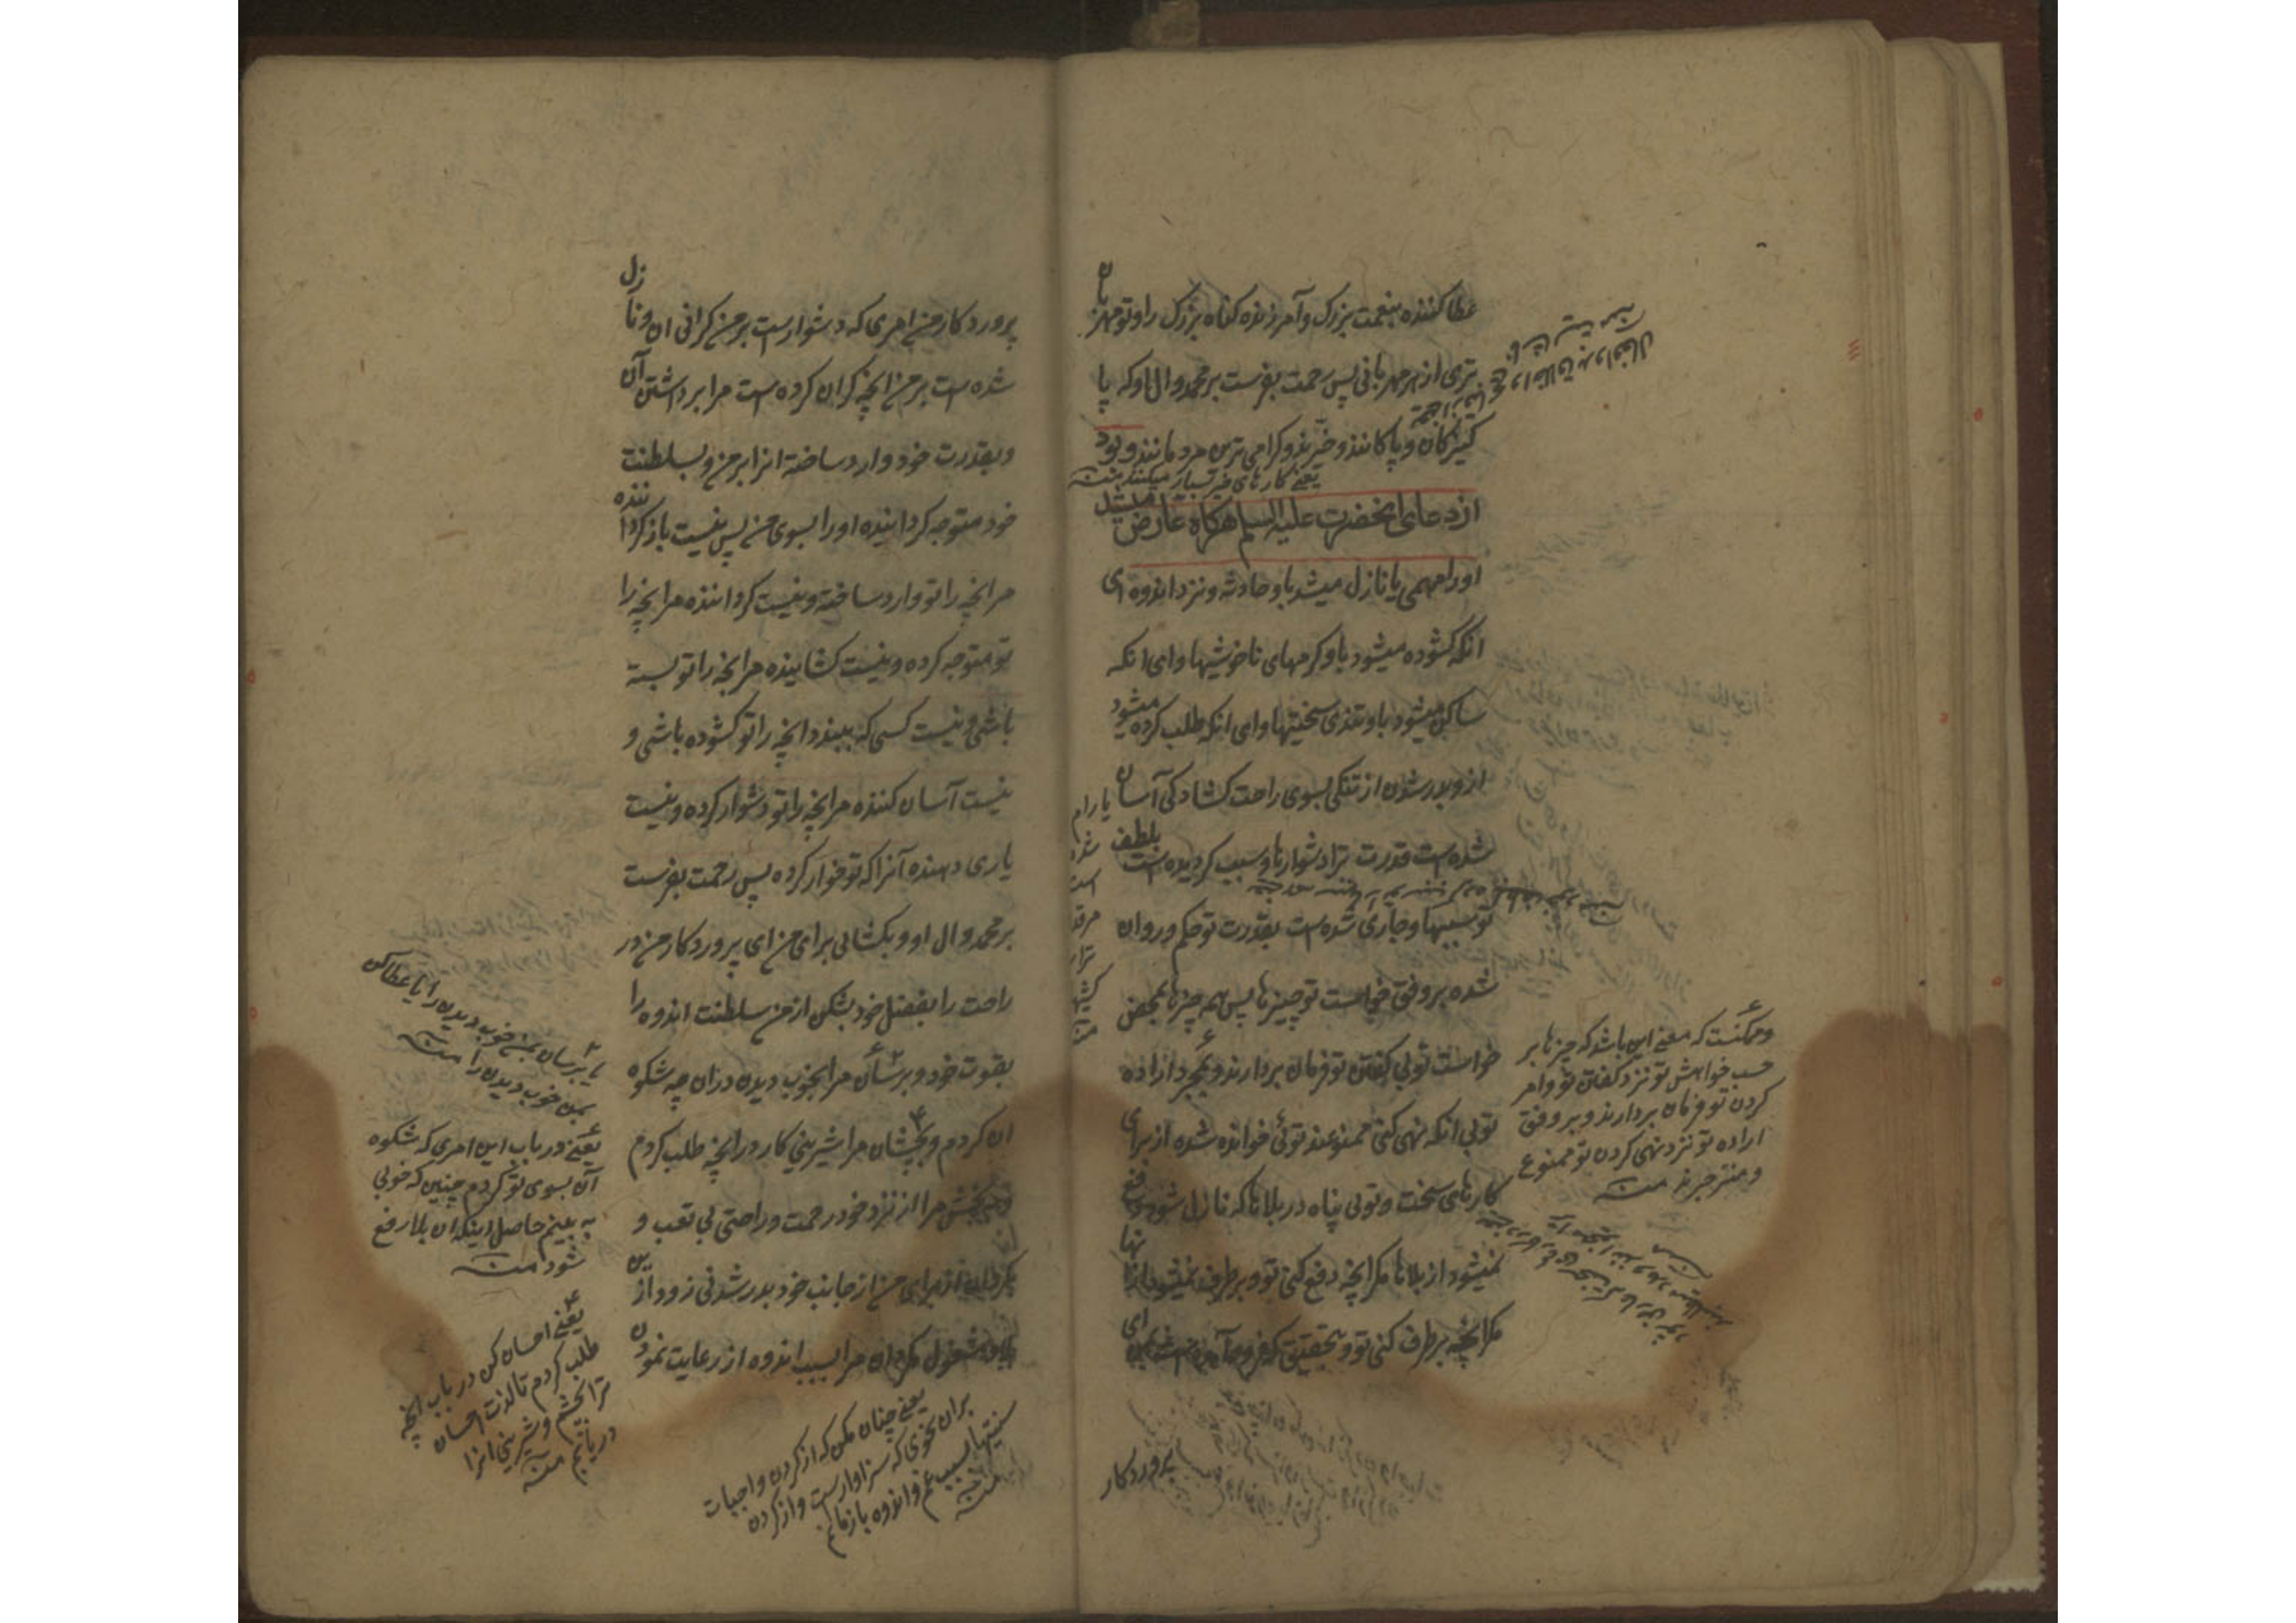 عطا کننده بنعمت بزرک وآمرزنده کناه بزرک را وتو مهربان
تری از هر مهربانی پس رحمت بفرست بر محمد وال او که پا
کیزکان و پاکانند وخیّرند وکرامی ترین مردمانند وبود
یعنے کارهای خیر بسیار میکنند منه
از دعای انحضرت علیه السلم هرکاه عارض میشد
اورا مهمی یا نازل میشد باو حادثه ونزد اندوه ای
انکه کشوده میشود باو کرههای ناخوشیها وای انکه
ساکن میشود باو تندی سختیها وای انکه طلب کرده میشود
ازو بدر شدن از تنکی بسوی راحت کشادکی آسان
یا رام شده است مر قدرت ترا
شده است قدرت ترا دشوارها وسبب کردیده است بلطف
تو سببها وجاری شده است بقدرت تو حکم و روان
شده بر وفق خواست تو چیزها پس همه چیزها بمحض
خواست تو بی کفتن تو فرمان بردارند وبمجرد اراده
تو بی انکه نهی کنی ممنوعند توئی خوانده شده از برای
کارهای سخت و توئی پناه در بلاها که نازل شود دفع
نمیشود از بلاها مکر انچه دفع کنی تو و بر طرف نمیشود ازانها
مکر انچه بر طرف کنی تو و بتحقیق که فرود آمد ای
پروردکار
وممکنست که معنے این باشد که چیزها بر
حسب خواهش تو نزد کفتن تو وامر
کردن تو فرمان بردارند وبر وفق
اراده تو نزد نهی کردن تو ممنوع
ومنزجرند منه
پروردکار من امری که دشوارست بر من کرانی ان ونازل
شده است بر من انچه کران کرده است مرا برداشتن آن
وبقدرت خود وارد ساخته انرا بر من وبسلطنت
خود متوجه کردانیده اورا بسوی من پس نیست باز کرداننده
مر انچه را تو وارد ساخته ونیست کرداننده مر انچه را
تو متوجه کرده ونیست کشاینده مر انچه را تو بسته
باشی ونیست کسی که ببندد انچه را تو کشوده باشی و
نیست آسان کننده مر انچه را تو دشوار کرده ونیست
یاری دهنده آنرا که تو خوار کرده پس رحمت بفرست
بر محمد وال او وبکشائی برای من ای پروردکار من در
راحت را بفضل خود بشکن از من سلطنت اندوه را
بقوت خود وبرسان مرا بخوب دیدن دران چه شکوه
ان کردم وبچشان مرا شیرینی کار در انچه طلب کردم
وببخش مرا از نزد خود رحمت وراحتی بی تعب و
بکردان از برای من از جانب خود بدر شدنی زود ازین
مشغول مکردان مرا بسبب اندوه از رعایت نمودن
یا برسان بمن خوب دیدن را یا عطا کن
بمن خوب دیدن را منه
یعنے در باب این امری که شکوه
آن بسوی تو کردم چنین که خوبی
به بینم حاصل اینکه ان بلا رفع
شود منه
یعنے احسان کن در باب انچه
طلب کردم تا لذت احسان
ترا بچشم وشیرینی انرا
دریابم منه
یعنے چنان مکن که از کردن واجبات
بران نحوی که سزاوارست واز کردن
سنتها بسبب غم واندوه باز مانم
منه